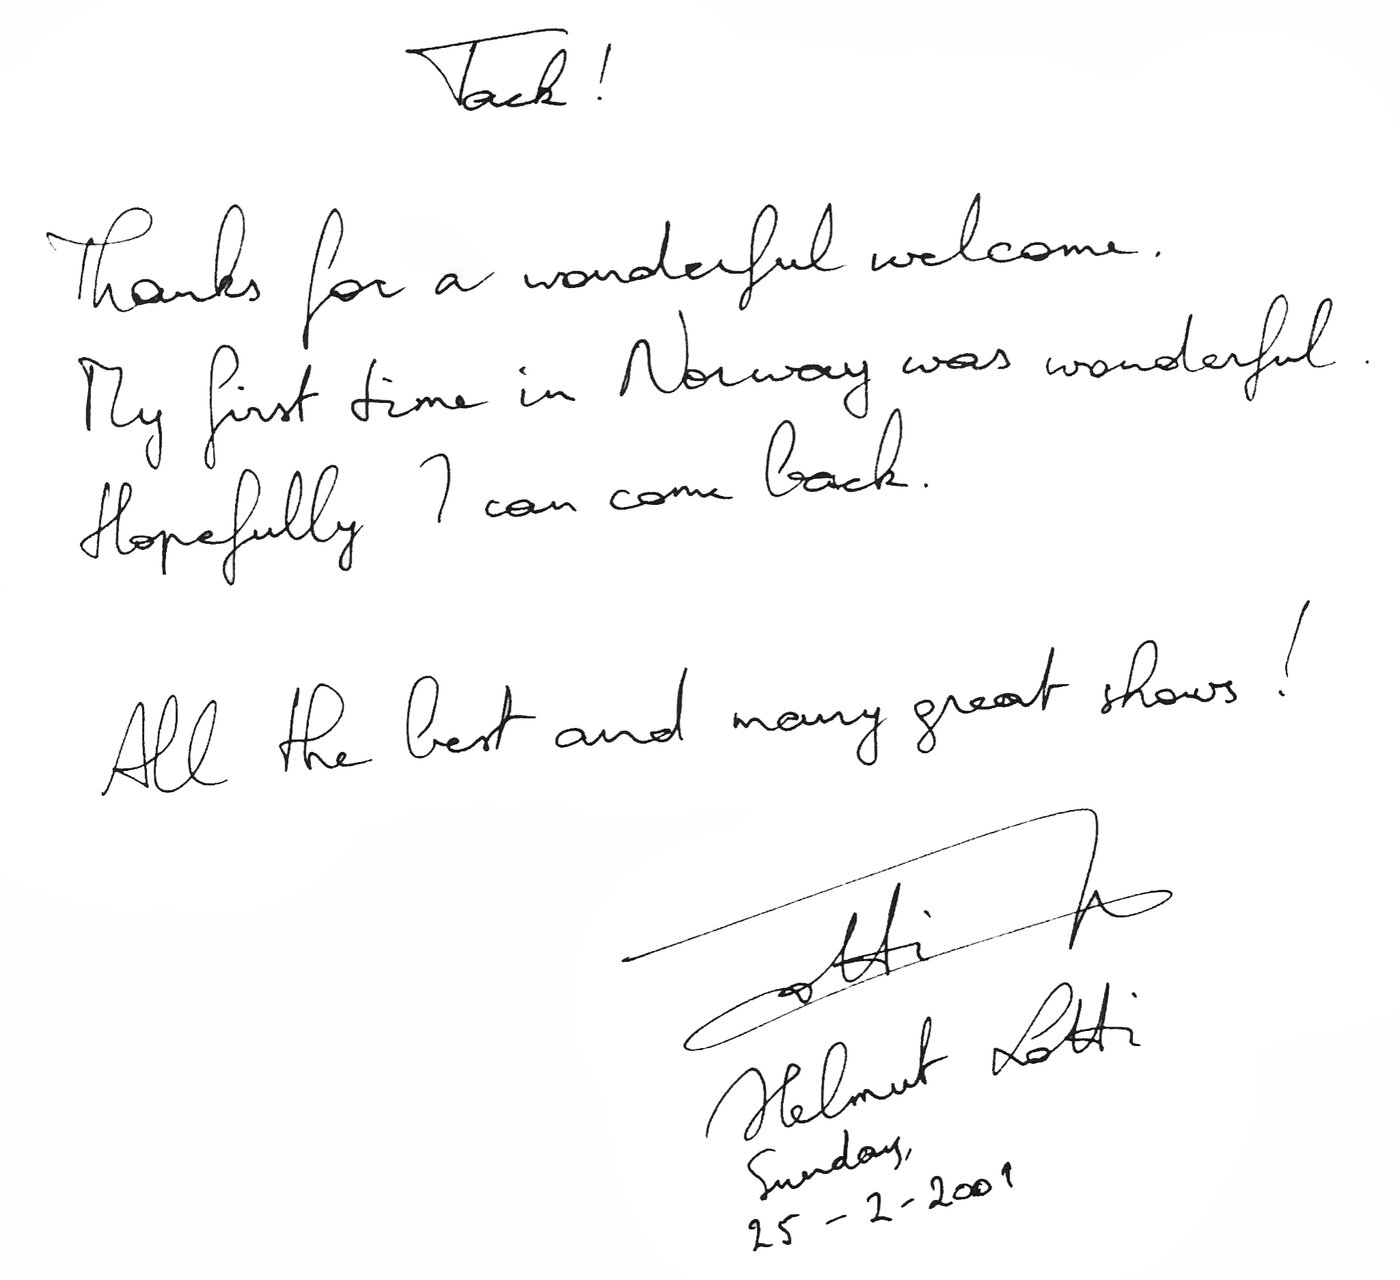 Tack!
Thanks for a wonderful welcome.
My first time in Norway was wonderful.
Hopefully I can come back.
All the best and many great shows!
Lotti
Helmut Lotti
Sunday,
25-2-2001